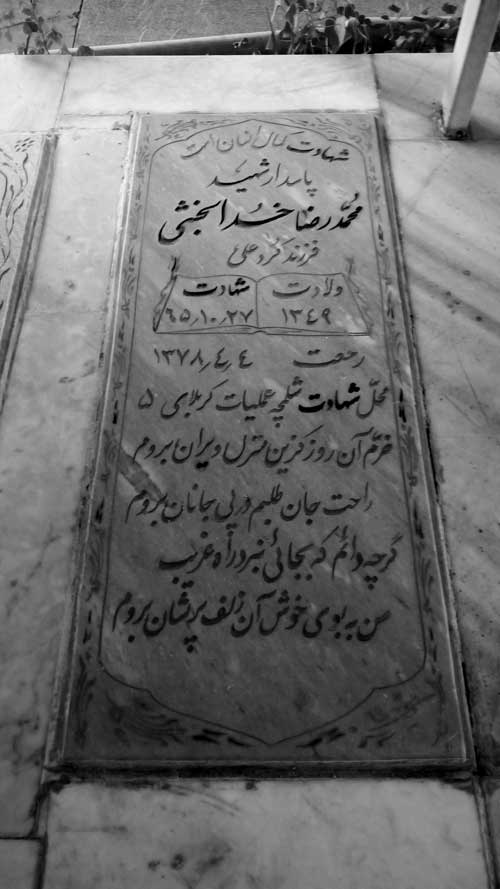 شهادت کمال انسان است
پاسدار شهید
محمّدرضا خدابخشی
فرزند کرد علی
ولادت شهادت
۱۳٤۹ ٦۵٫۱۰٫۲۷
رحعت ٤٫٤٫۱۳۷۸
محلّ شهادت شلمچه عملیات کربلای ۵
خرّم آن روز کزین منزل ویران بروم
راحت جان طلبم در پی جانان بروم
گرچه دانم که بجائی نبرد راه غریب
من به بوی خوش آن زلف پریشان بروم